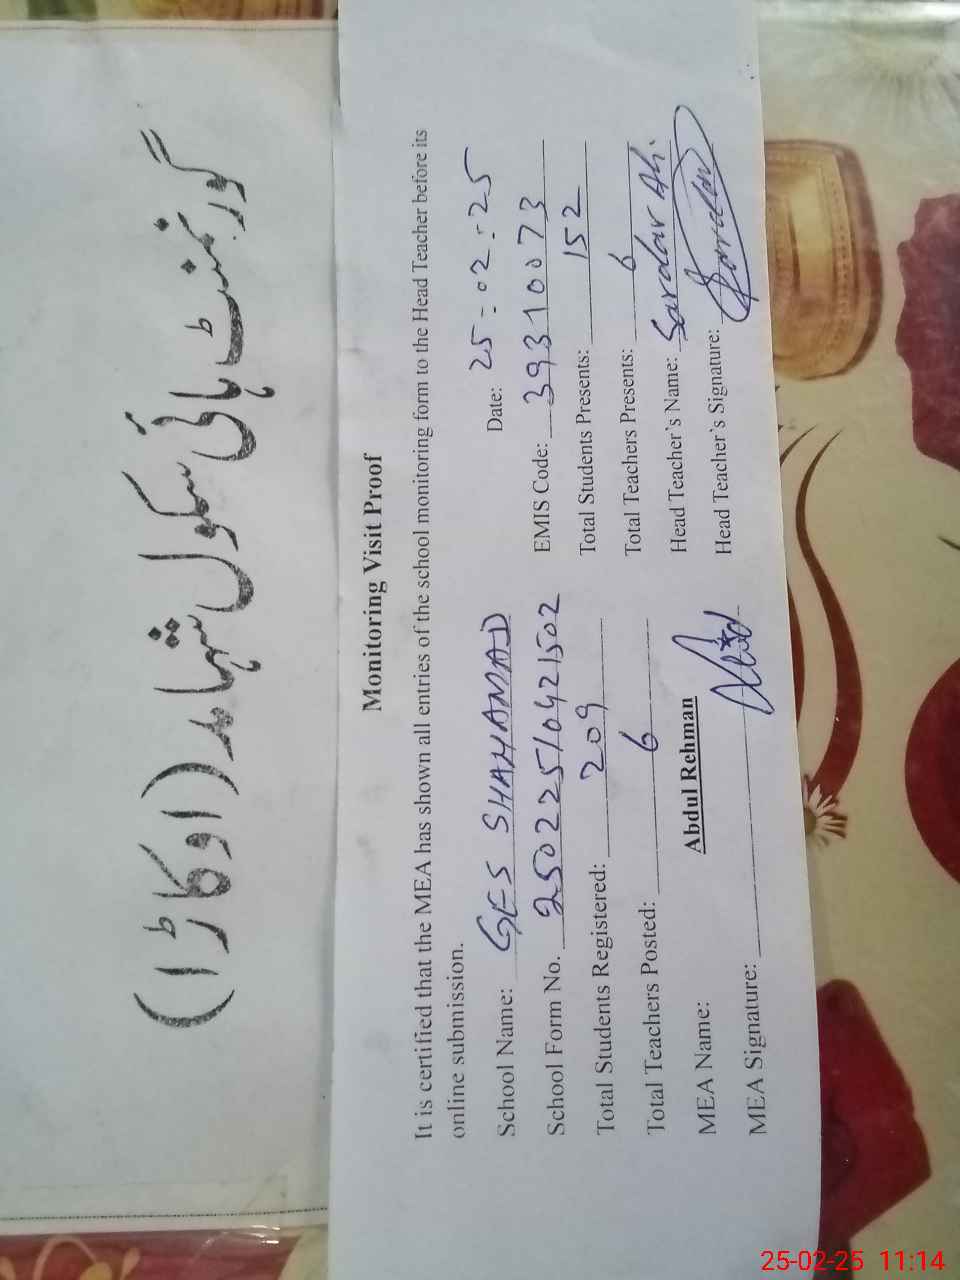 گورنمنٹ ہائی سکول شہامد (اوکاڑا)
Monitoring Visit Proof
It is certified that the MEA has shown all entries of the school monitoring form to the Head Teacher before its
online submission.
Date: 25-02-25
School Name: GES SHAHAMAD
EMIS Code: 39310073
School Form No. 250222510421502
Total Students Presents: 152
Total Students Registered: 209
Total Teachers Presents: 6
Total Teachers Posted: 6
Head Teacher's Name: Sardar Ali
MEA Name: Abdul Rehman
Head Teacher's Signature:
MEA Signature:
25-02-25 11:14